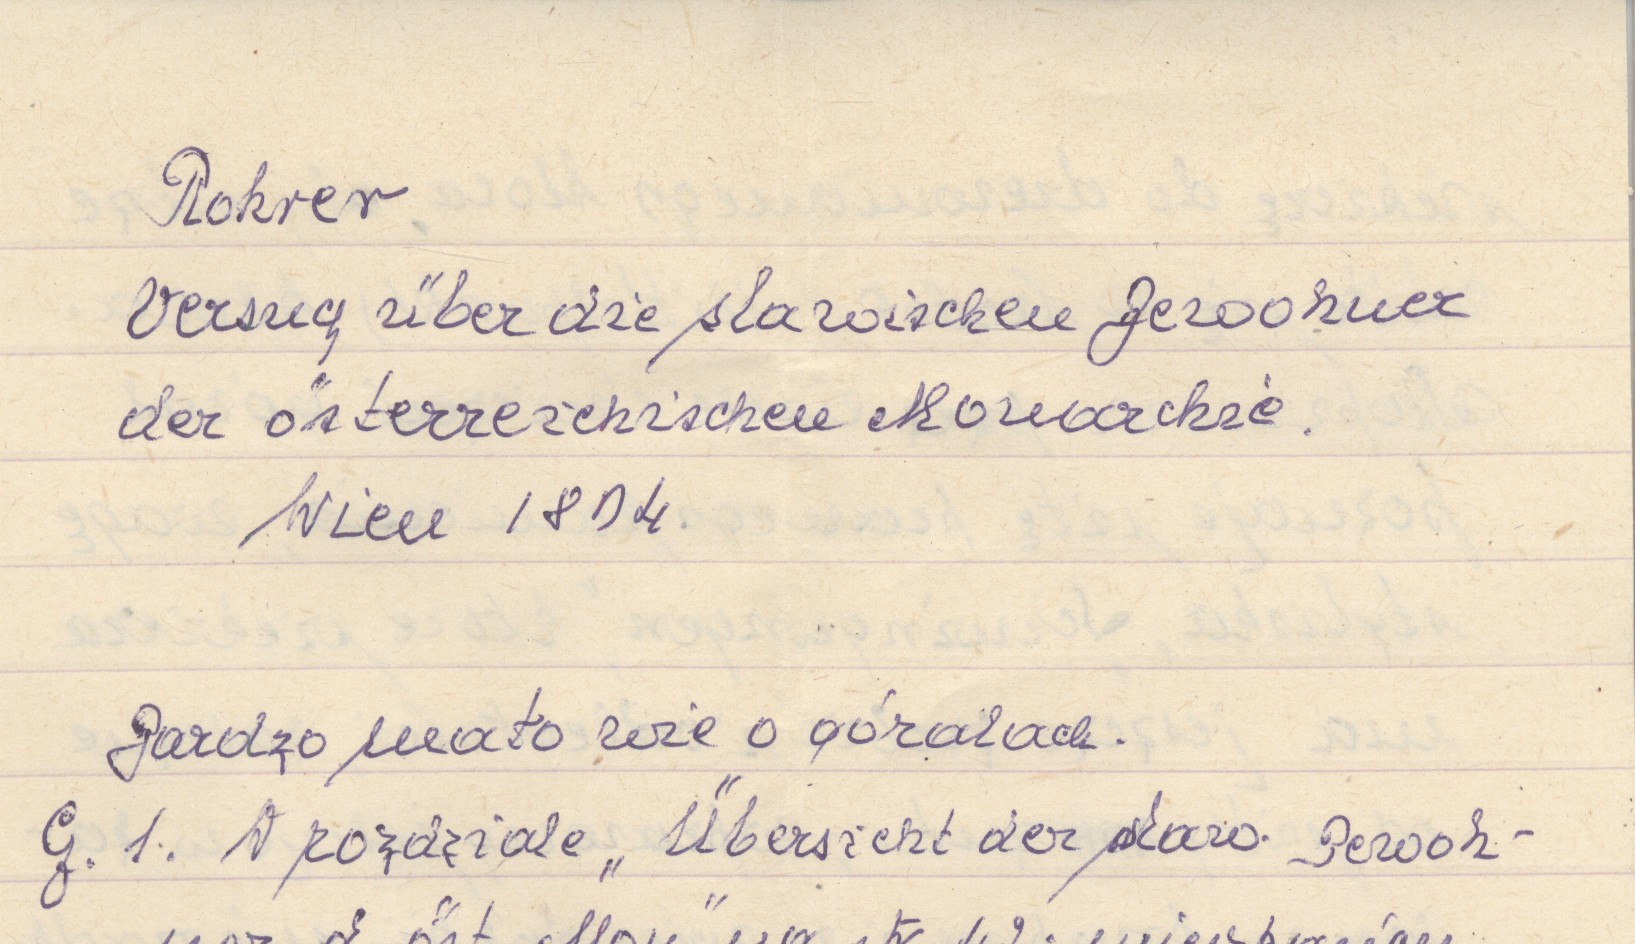 Rohrer
Versug über die slawischen Bewohner
der österreichischen Monarchie.
Wien 1804
Bardzo mało wie o góralach.
G. 1. W rozdziale „Übersicht der slaw. Bewoh-
ner d. öst. Mon" na str. 42